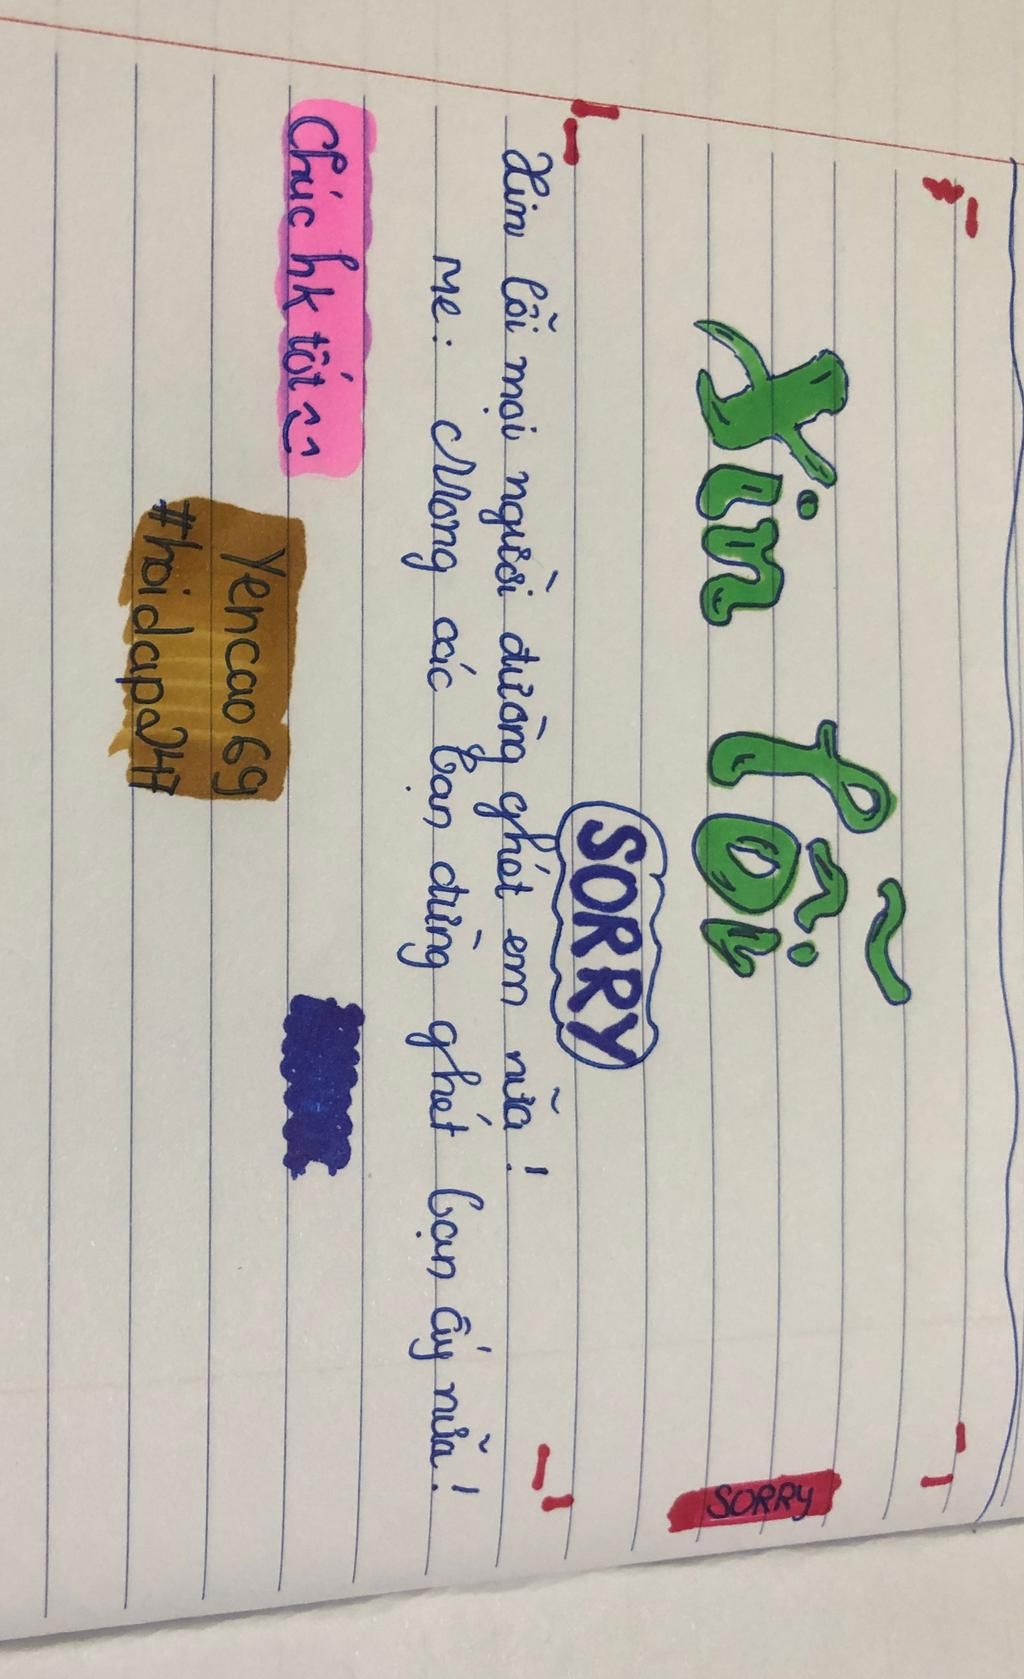 Xin lỗi
SORRY
SORRY
Xin lỗi mọi người đường ghét em nữa!
Me: Mong các bạn đừng ghét bạn ấy nữa!
Chúc hk tốt ^^
Yencao69
#hoidap247